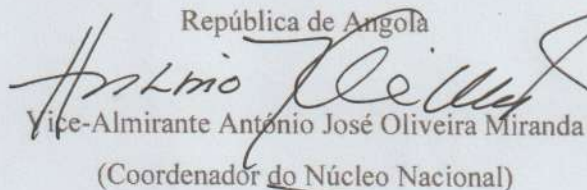 República de Angola
António
Vice-Almirante António José Oliveira Miranda
(Coordenador do Núcleo Nacional)